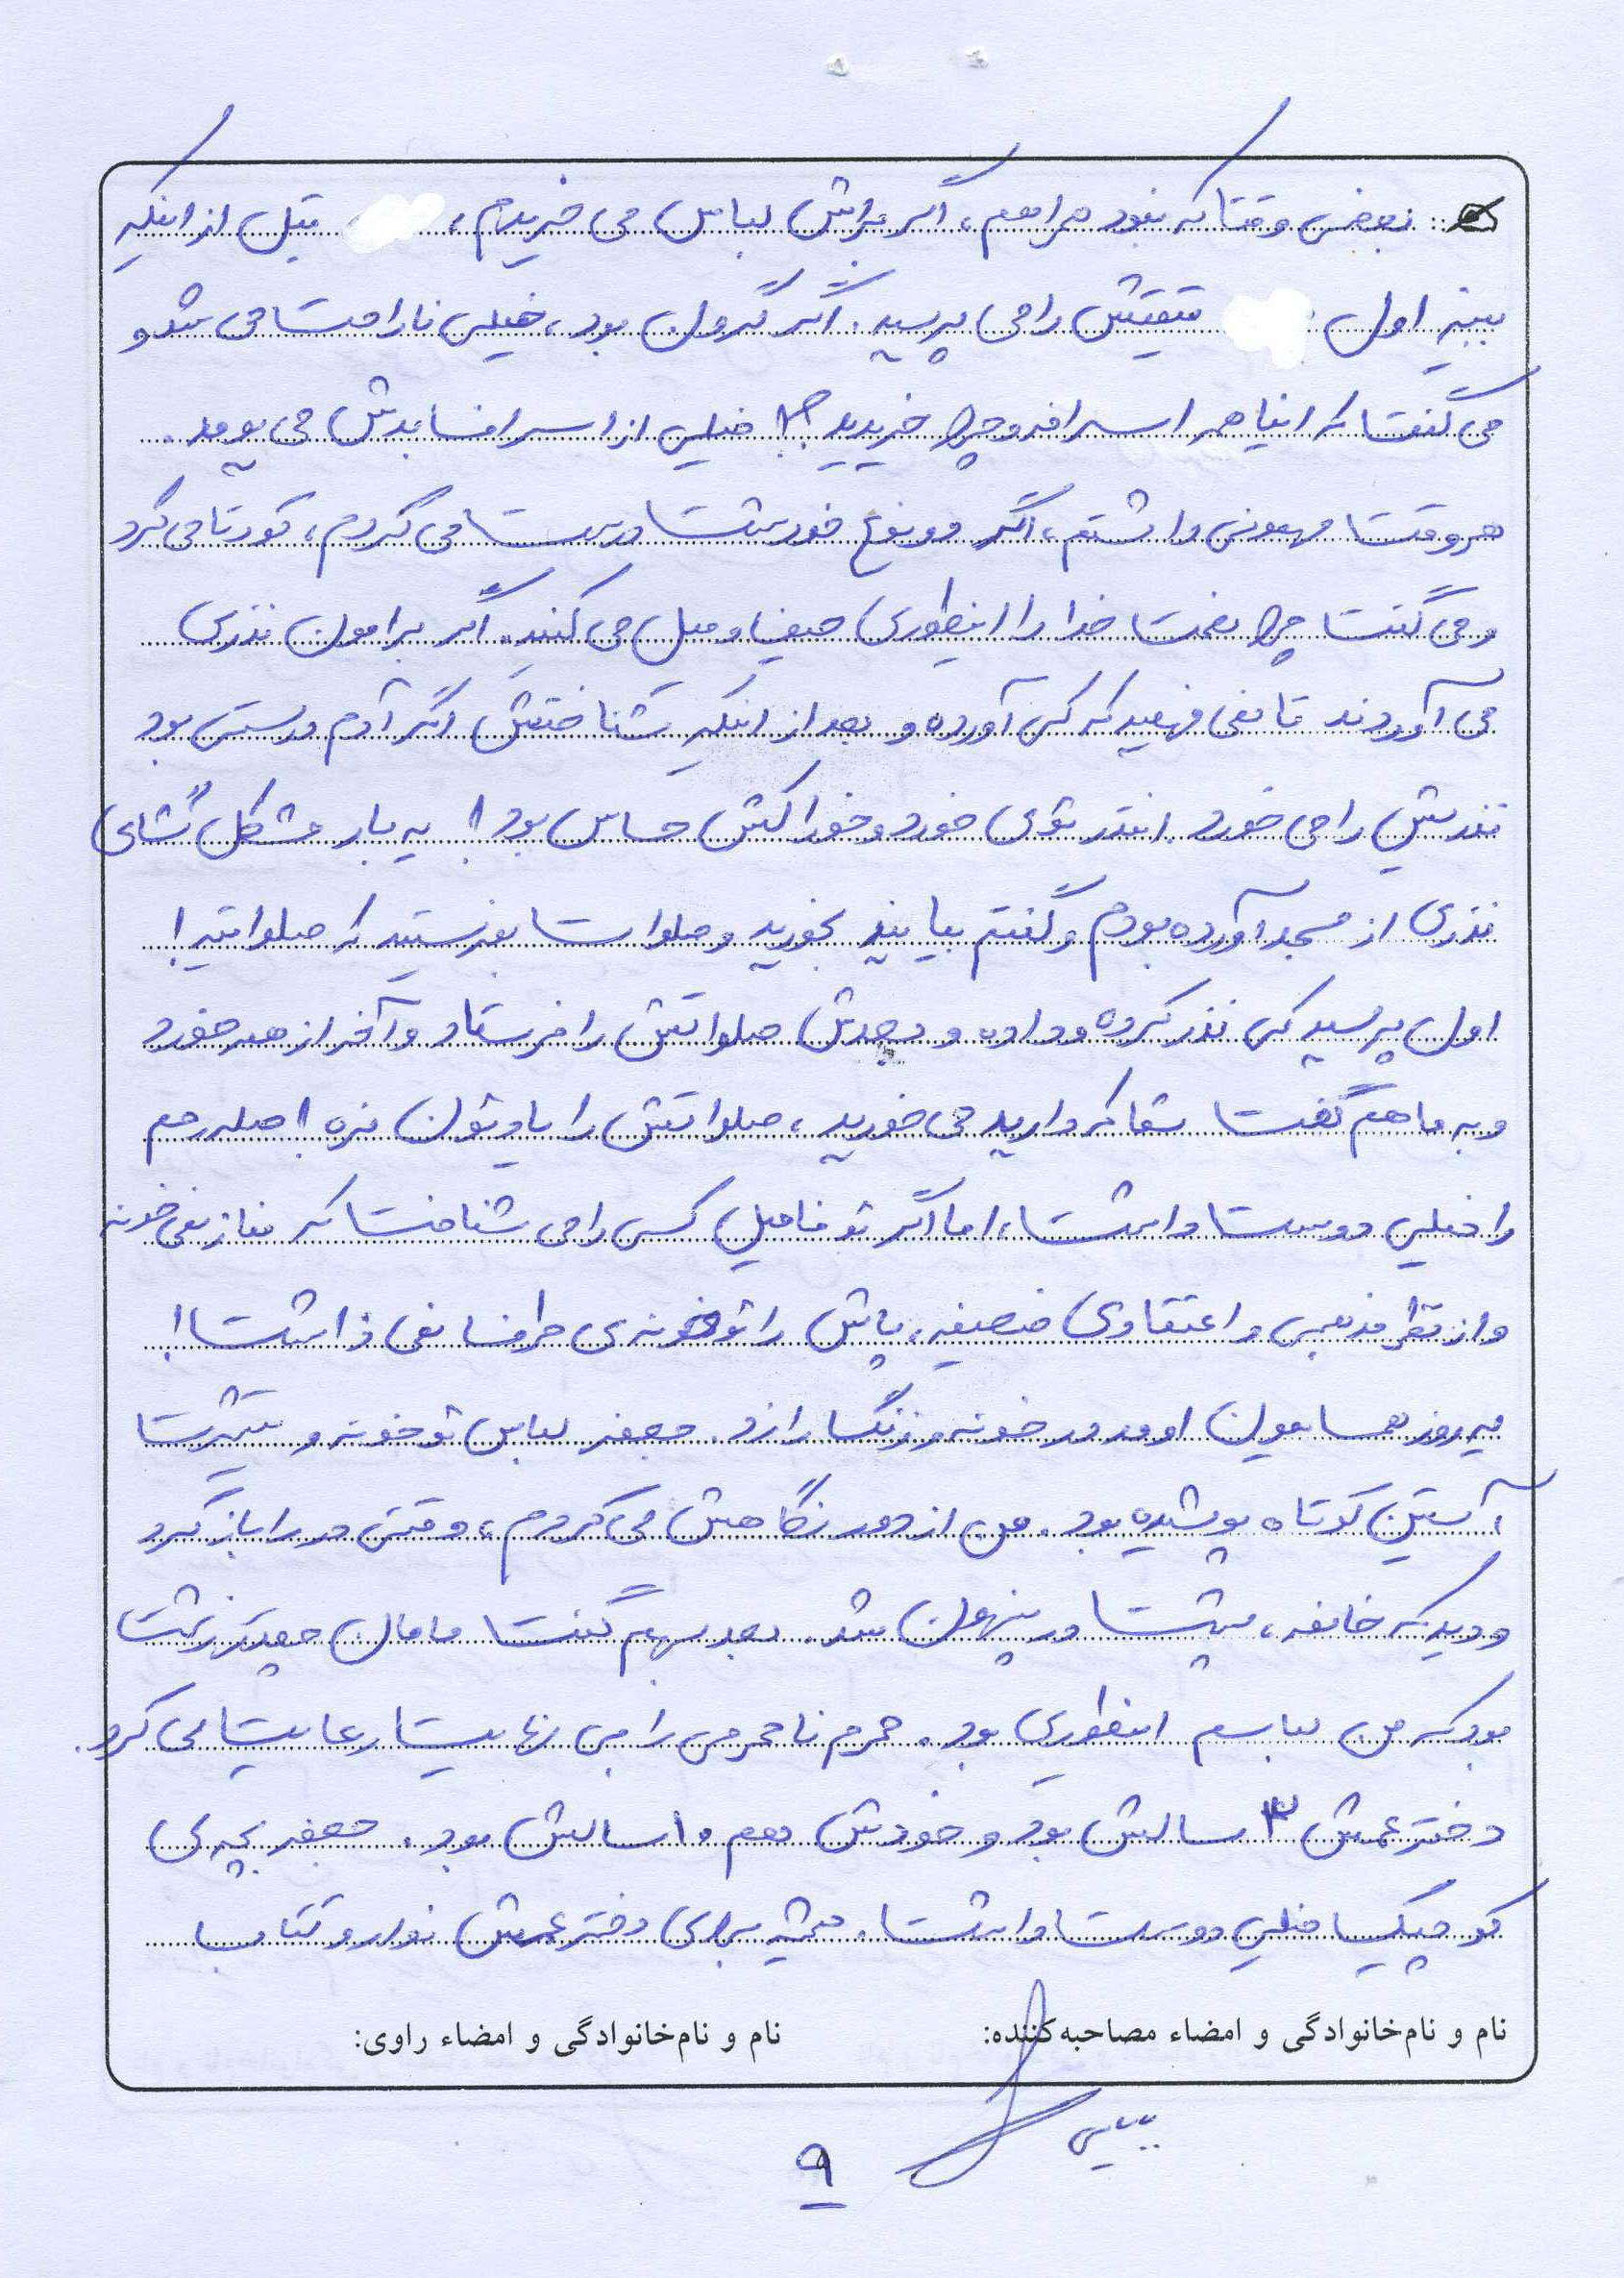 بعضی وقتا که نبود همراهم، اگر براش لباس می خریدم، قبل از اینکه
ببینه اول قیمتش را می پرسید. اگر گرون بود، خیلی ناراحت می شد و
می گفت که اینا همه اسرافه و چرا خریدید؟! خیلی از اسراف بدش می یومد.
هر وقت مهمونی داشتم، اگر دو نوع خورشت درست می کردم، دعوا می کرد
و می گفت چرا نعمت خدا را اینطوری حیف و میل می کنید. اگر برامون نذری
می آوردند تا نمی فهمید که کی آورده و بعد از اینکه شناختش اگر آدم درستی بود
نذریش را می خورد. انقدر توی خورد و خوراکش حساس بود! یه بار مشکل گشای
نذری از مسجد آورده بودم و گفتم بیایید بخورید و صلوات بفرستید که صلواتیه!
اول پرسید کی نذر کرده و داده و بعدش صلواتش را فرستاد و آخر از همه خورد
و به ما هم گفت شما که دارید می خورید، صلواتش را یادتون نره! صله رحم
را خیلی دوست داشت، اما اگر تو فامیل کسی را می شناخت که نماز نمی خونه
و از نظر مذهبی و اعتقادی ضعیفه، پاش را تو خونه ی طرف نمی ذاشت!
یه روز همسایمون اومد در خونه و زنگ را زد. جعفر لباس تو خونه و تیشرت
آستین کوتاه پوشیده بود. من از دور نگاهش می کردم، وقتی در را باز کرد
و دید که خانمه، پشت در پنهون شد. بعد بهم گفت مامان چقدر زشت
بود که من لباسم اینطوری بود. محرم نامحرمی را بی نهایت رعایت می کرد.
دختر عمش ۳ سالش بود و خودش هم ۱۰ سالش بود. جعفر بچه ی
کوچیک خیلی دوست داشت. همیشه برای دختر عمش نوار و کتاب
نام و نام‌خانوادگی و امضاء مصاحبه‌کننده: نام و نام‌خانوادگی و امضاء راوی:
۹